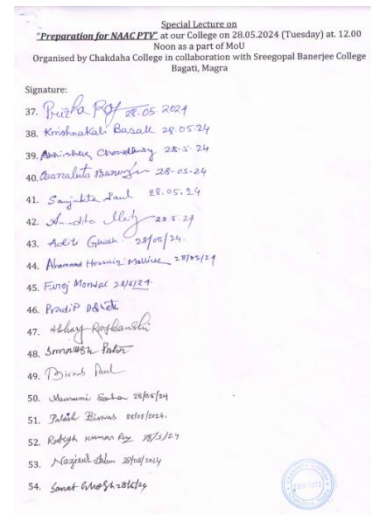 Special Lecture on
"Preparation for NAAC PTV" at our College on 28.05.2024 (Tuesday) at. 12.00
Noon as a part of MoU
Organised by Chakdaha College in collaboration with Sreegopal Banerjee College
Bagati, Magra
Signature:
37. 28.05.2024
38. Krishnakali Basak 28.05.24
39. Abhishek Chowdhury 28.5.24
40. Banalata Banerjee 28-05-24
41. Sanjukta Paul 28.05.24
42. 28.5.24
43. Aditi Ghosh 28/05/24.
44. Hossain Mallick 28/05/24
45. Firoj Mondal 28/5/24
46. Pradip
47. Abhay Rajbanshi
48.
49. Paul
50. Mousumi Saha 28/05/24
51. Palash Biswas 28/05/2024.
52. Kumar Roy 28/5/24
53. 28/05/2024
54. Sanat Ghosh 28/5/24